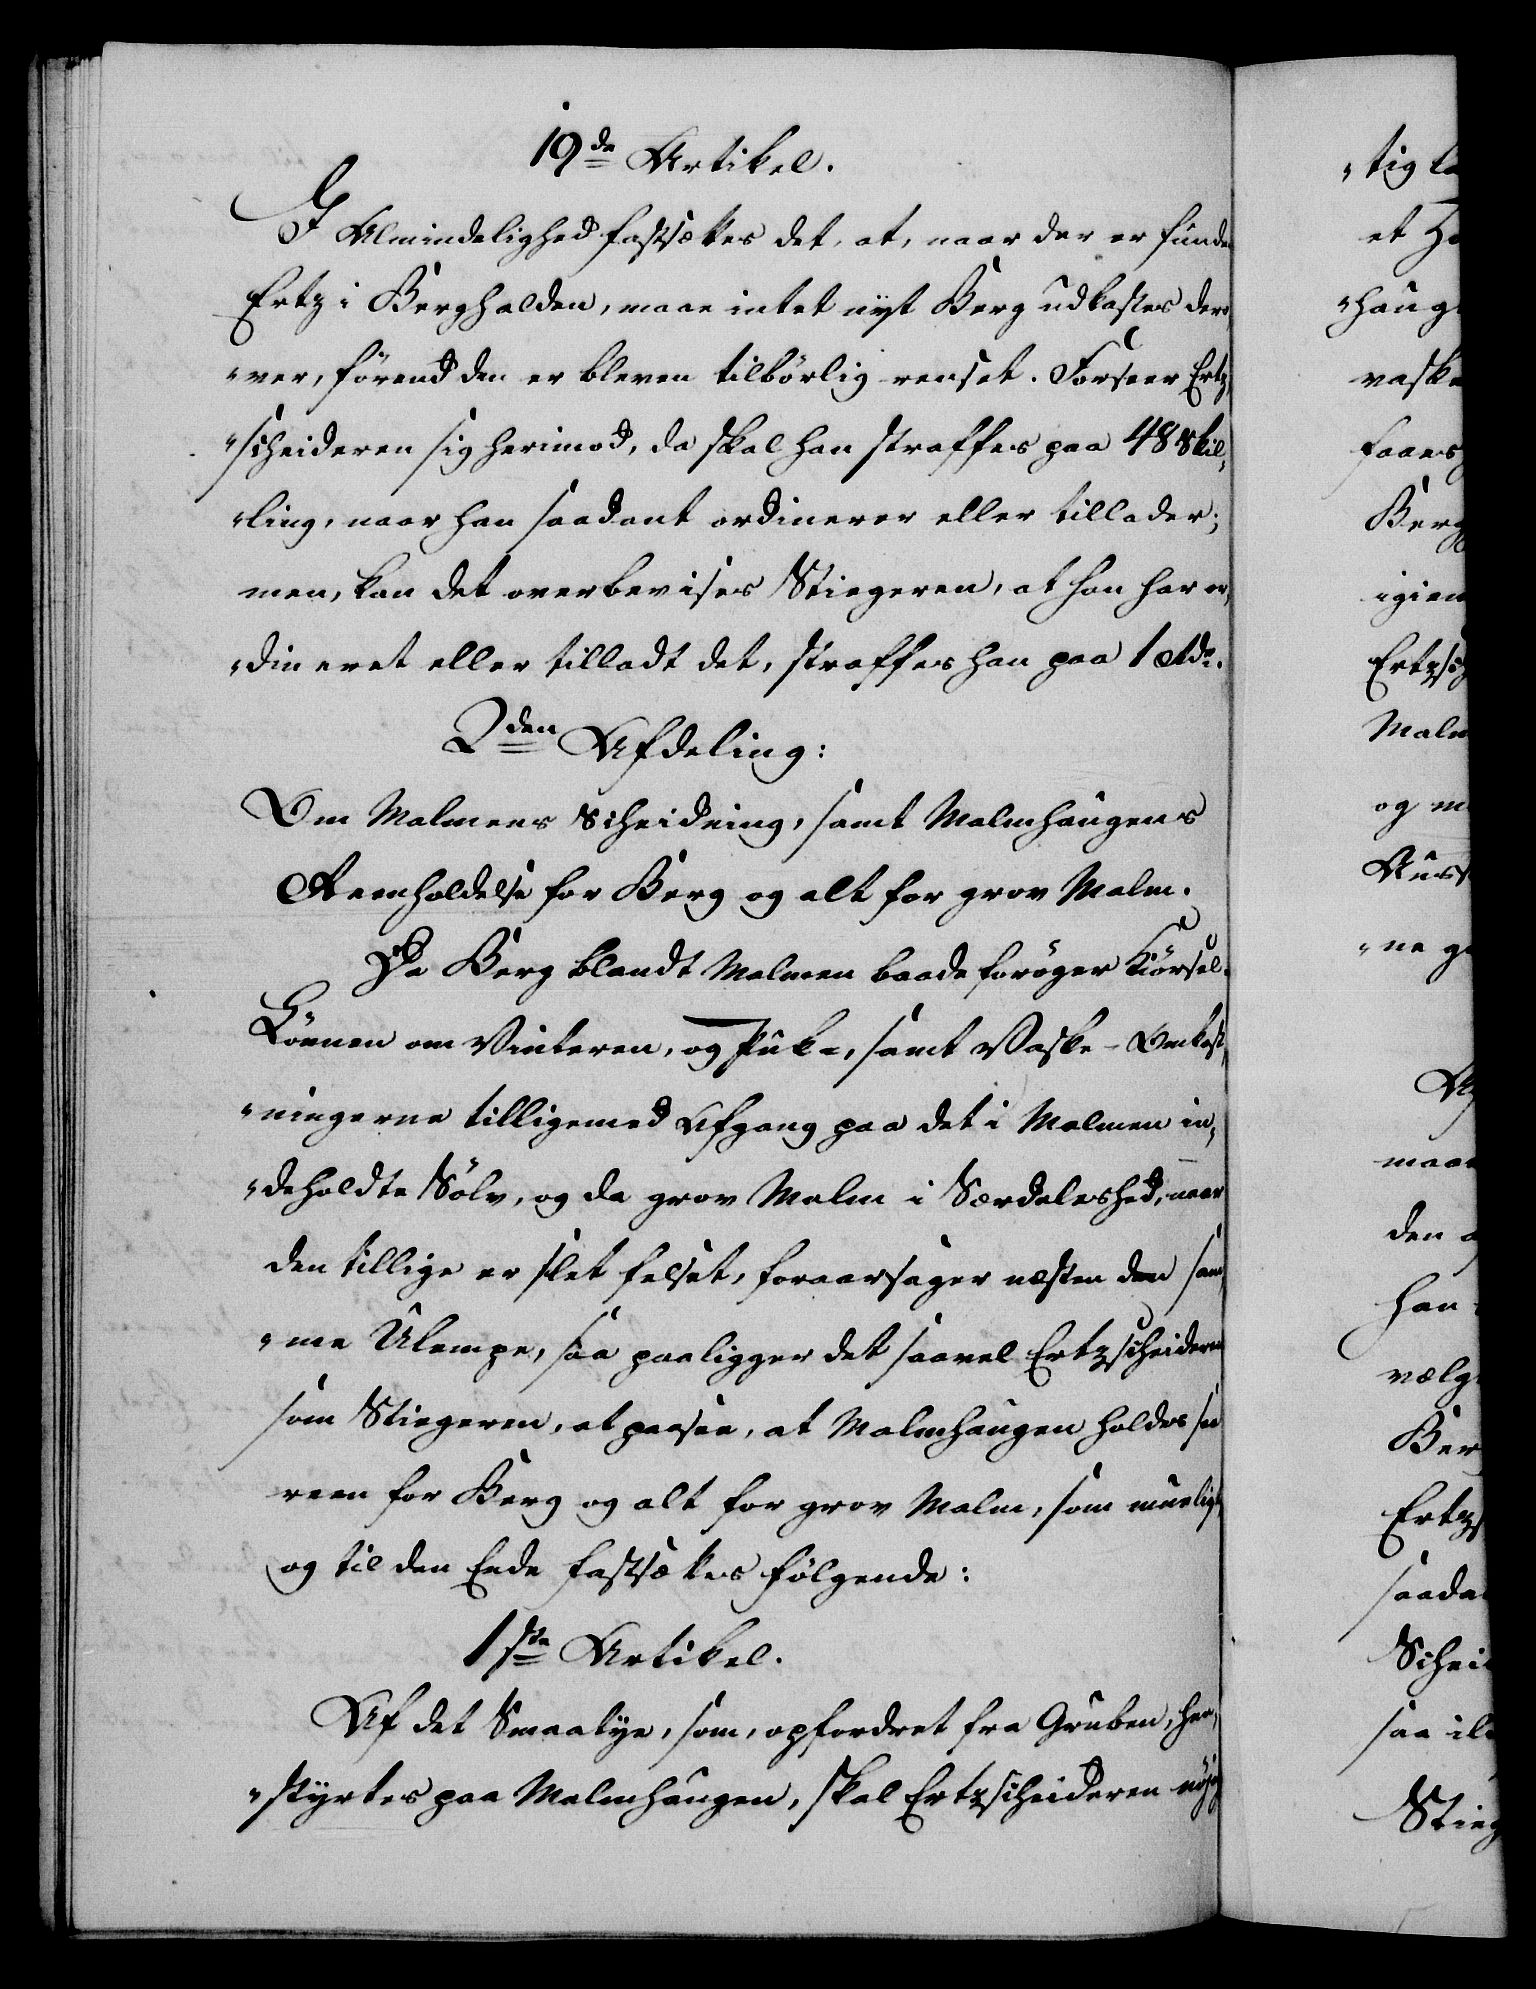 19de Artikel.
I Almindelighed fastsættes det, at, naar der er funden
Ertz i Berghalden, maae intet nyt Berg udkastes der-
„over, förend den er bleven tilbörlig renset. Forseer Ertz-
„scheideren sig herimod, da skal han straffes paa 48 Skil-
„ling, naar han saadant ordinerer eller tillader;
men, kan det overbevises Stiegeren, at han har or-
„dineret eller tilladt det, straffes han paa 1 Rdr.
2den Afdeling:
Om Malmens Scheidning, samt Malmhaugens
Reenholdelse for Berg og alt for grov Malm.
Da Berg blandt Malmen baade foröger Kiörsel-
Lönnen om Vinteren, og Puk-, samt Vaske-Omkost-
„ningerne tilligemed Afgang paa det i Malmen in-
„deholdte Sölv, og da grov Malm i Særdeleshed, naar
den tillige er slet felset, foraarsager næsten den sam-
„me Ulempe, saa paaligger det saavel Ertzscheideren
som Stiegeren, at paasee, at Malmhaugen holdes saa
reen for Berg og alt for grov Malm, som mueligt,
og til den Ende fastsættes fölgende:
1ste Artikel.
Af det Smaatye, som, opfordret fra Gruben, hen-
„styrtes paa Malmhaugen, skal Ertzscheideren nöje
„tig
et
„haug
vaske
faaes
Berg
igien
Ertzsch
Malm
og
„ne
maae
den
han
vælg
Ber
Ertzs
saada
Schei
saa
Stieg